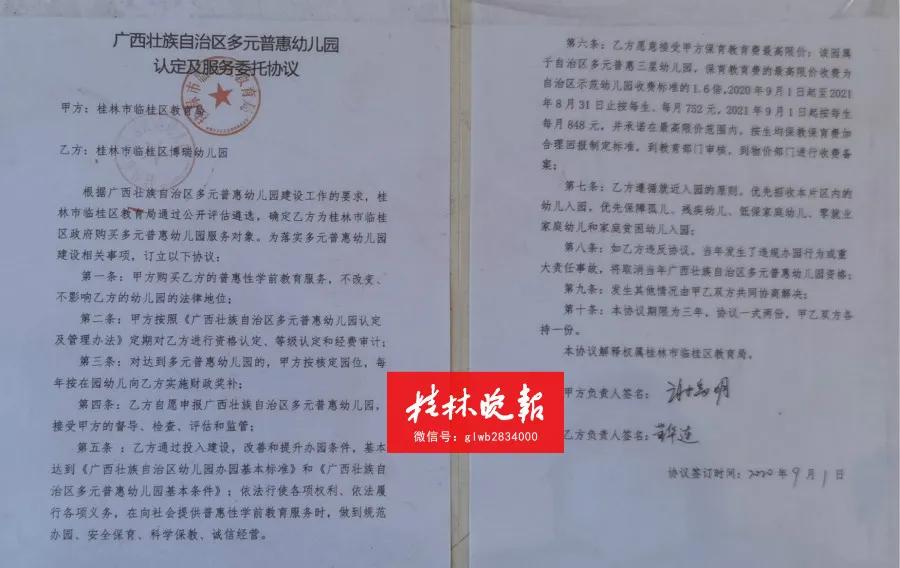 广西壮族自治区多元普惠幼儿园
认定及服务委托协议
甲方：桂林市临桂区教育局
乙方：桂林市临桂区博瑞幼儿园
根据广西壮族自治区多元普惠幼儿园建设工作的要求，桂
林市临桂区教育局通过公开评估遴选，确定乙方为桂林市临桂
区政府购买多元普惠幼儿园服务对象。为落实多元普惠幼儿园
建设相关事项，订立以下协议：
第一条：甲方购买乙方的普惠性学前教育服务，不改变、
不影响乙方的幼儿园的法律地位；
第二条：甲方按照《广西壮族自治区多元普惠幼儿园认定
及管理办法》定期对乙方进行资格认定、等级认定和经费审计；
第三条：对达到多元普惠幼儿园的，甲方按核定园位，每
年按在园幼儿向乙方实施财政奖补；
第四条：乙方自愿申报广西壮族自治区多元普惠幼儿园，
接受甲方的督导、检查、评估和监管；
第五条：乙方通过投入建设，改善和提升办园条件，基本
达到《广西壮族自治区幼儿园办园基本标准》和《广西壮族自
治区多元普惠幼儿园基本条件》；依法行使各项权利、依法履
行各项义务，在向社会提供普惠性学前教育服务时，做到规范
办园、安全保育、科学保教、诚信经营。
第六条：乙方愿意接受甲方保育教育费最高限价：该园属
于自治区多元普惠三星幼儿园，保育教育费的最高限价收费为
自治区示范幼儿园收费标准的1.6倍，2020年9月1日起至2021
年8月31日止按每生、每月752元，2021年9月1日起按每生
每月848元，并承诺在最高限价范围内，按生均保教保育费加
合理回报制定标准，到教育部门审核，到物价部门进行收费备
案；
第七条：乙方遵循就近入园的原则，优先招收本片区内的
幼儿入园，优先保障孤儿、残疾幼儿、低保家庭幼儿、零就业
家庭幼儿和家庭贫困幼儿入园；
第八条：如乙方违反协议，当年发生了违规办园行为或重
大责任事故，将取消当年广西壮族自治区多元普惠幼儿园资格；
第九条：发生其他情况由甲乙双方共同协商解决；
第十条：本协议期限为三年，协议一式两份，甲乙双方各
持一份。
本协议解释权属桂林市临桂区教育局。
甲方负责人签名：
乙方负责人签名：
协议签订时间：2020年9月1日
桂林晚報
微信号：glwb2834000